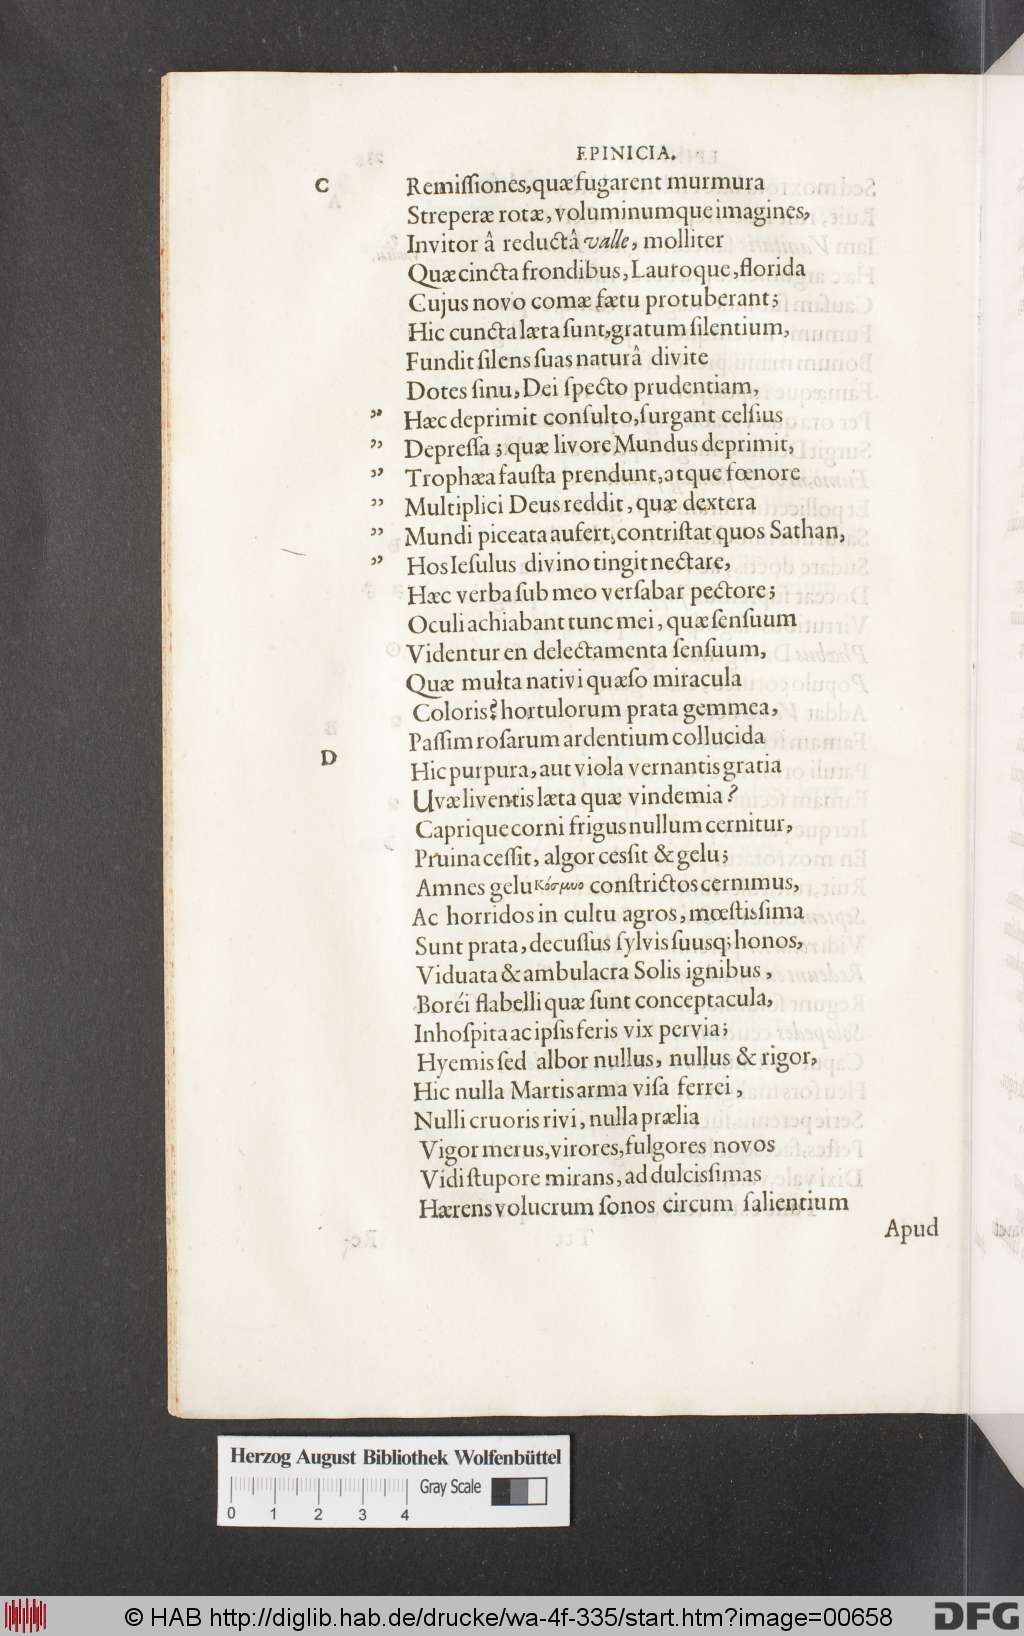 EPINICIA.
C Remiſſiones,quæ fugarent murmura
Streperæ rotæ, voluminumque imagines,
Invitor â reductâ valle, molliter
Quæ cincta frondibus, Lauroque, florida
Cujus novo comæ fætu protuberant;
Hic cuncta læta ſunt,gratum ſilentium,
Fundit ſilens ſuas naturâ divite
Dotes ſinu, Dei ſpecto prudentiam,
" Hæc deprimit conſulto,ſurgant celſius
" Depreſſa ; quæ livore Mundus deprimit,
" Trophæa fauſta prendunt,atque fœnore
" Multiplici Deus reddit, quæ dextera
" Mundi piceata aufert,contriſtat quos Sathan,
" Hos Ieſulus divino tingit nectare,
Hæc verba ſub meo verſabar pectore;
Oculi achiabant tunc mei, quæ ſenſuum
Videntur en delectamenta ſenſuum,
Quæ multa nativi quæſo miracula
Coloris? hortulorum prata gemmea,
Paſſim roſarum ardentium collucida
D Hic purpura, aut viola vernantis gratia
Uvæ liventis læta quæ vindemia?
Caprique corni frigus nullum cernitur,
Pruina ceſſit, algor cesſit & gelu;
Amnes gelu conſtrictos cernimus,
Ac horridos in cultu agros, mœſtisſima
Sunt prata, decuſſus ſylvis ſuusq; honos,
Viduata & ambulacra Solis ignibus,
Boréi flabelli quæ ſunt conceptacula,
Inhoſpita ac ipſis feris vix pervia;
Hyemis ſed albor nullus, nullus & rigor,
Hic nulla Martis arma viſa ferrei,
Nulli cruoris rivi, nulla prælia
Vigor merus, virores, fulgores novos
Vidi ſtupore mirans, ad dulcisſimas
Hærens volucrum ſonos circum ſalientium
Apud
Herzog August Bibliothek Wolfenbüttel
Gray Scale
0 1 2 3 4
© HAB http://diglib.hab.de/drucke/wa-4f-335/start.htm?image=00658
DFG